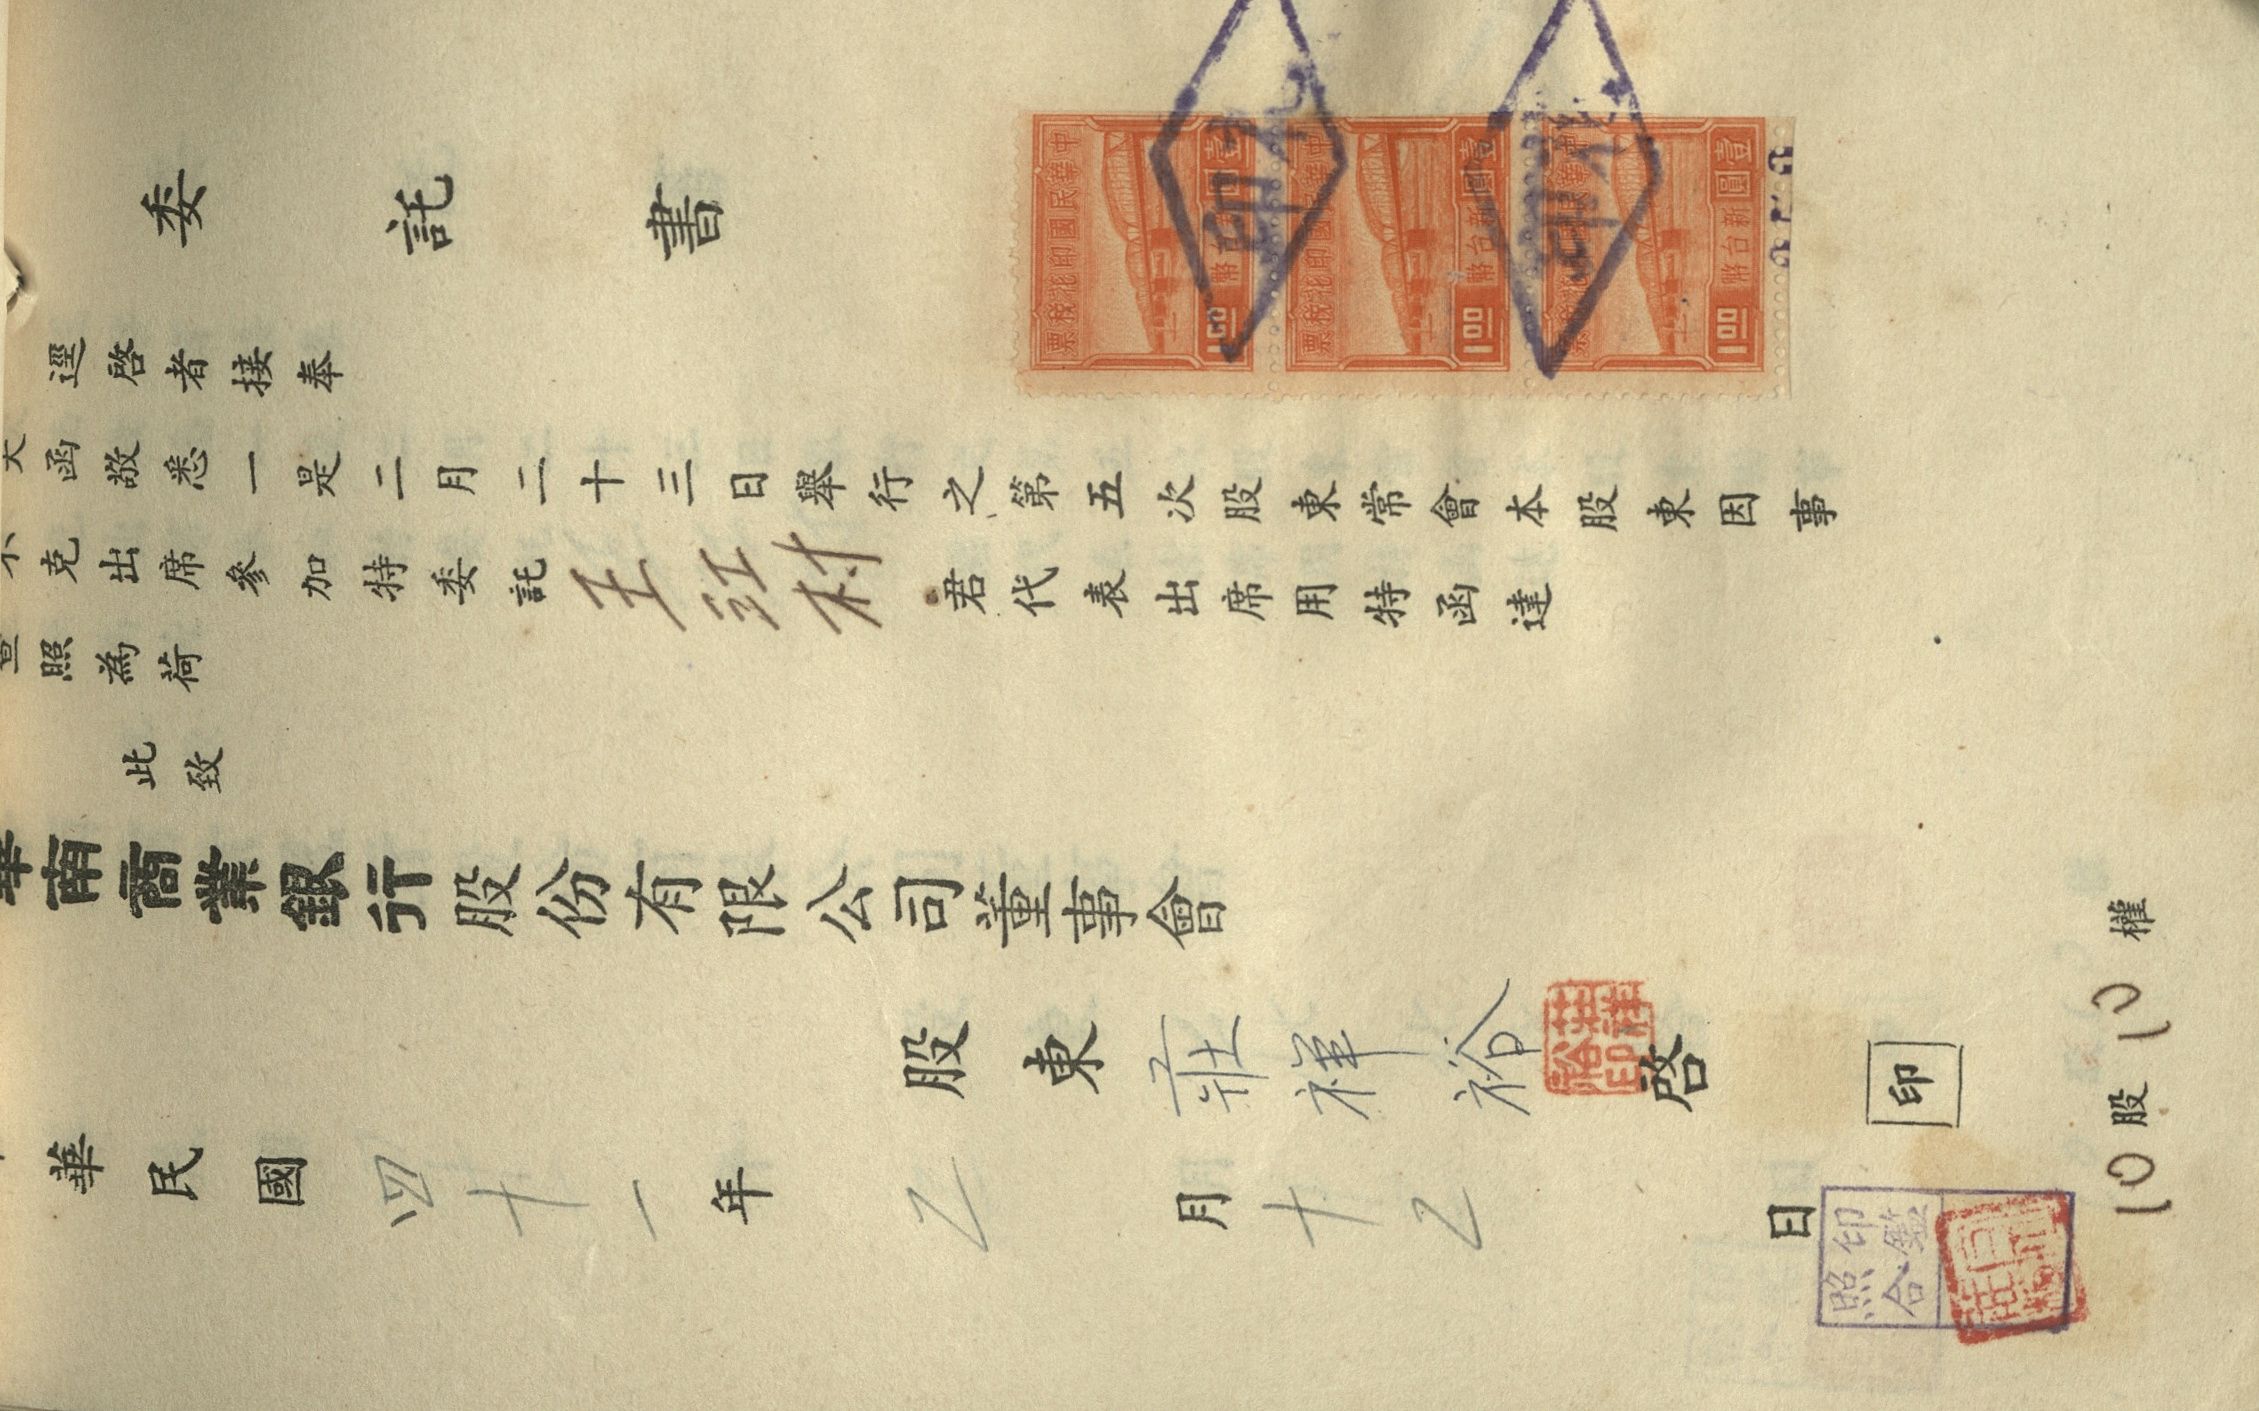 委託書
逕啓者接奉
大函敬悉一是二月二十三日舉行之第五次股東常會本股東因事
不克出席參加特委託王江村君代表出席用特函達
查照為荷
此致
華南商業銀行股份有限公司董事會
股東莊祥裕啓
印
華民國四十一年乙月十乙日
10股10權
中華民國印花稅票
壹圓新台幣
1.00
中華民國印花稅票
壹圓新台幣
1.00
壹圓新台幣
1.00
莊祥裕印
印鑑照合